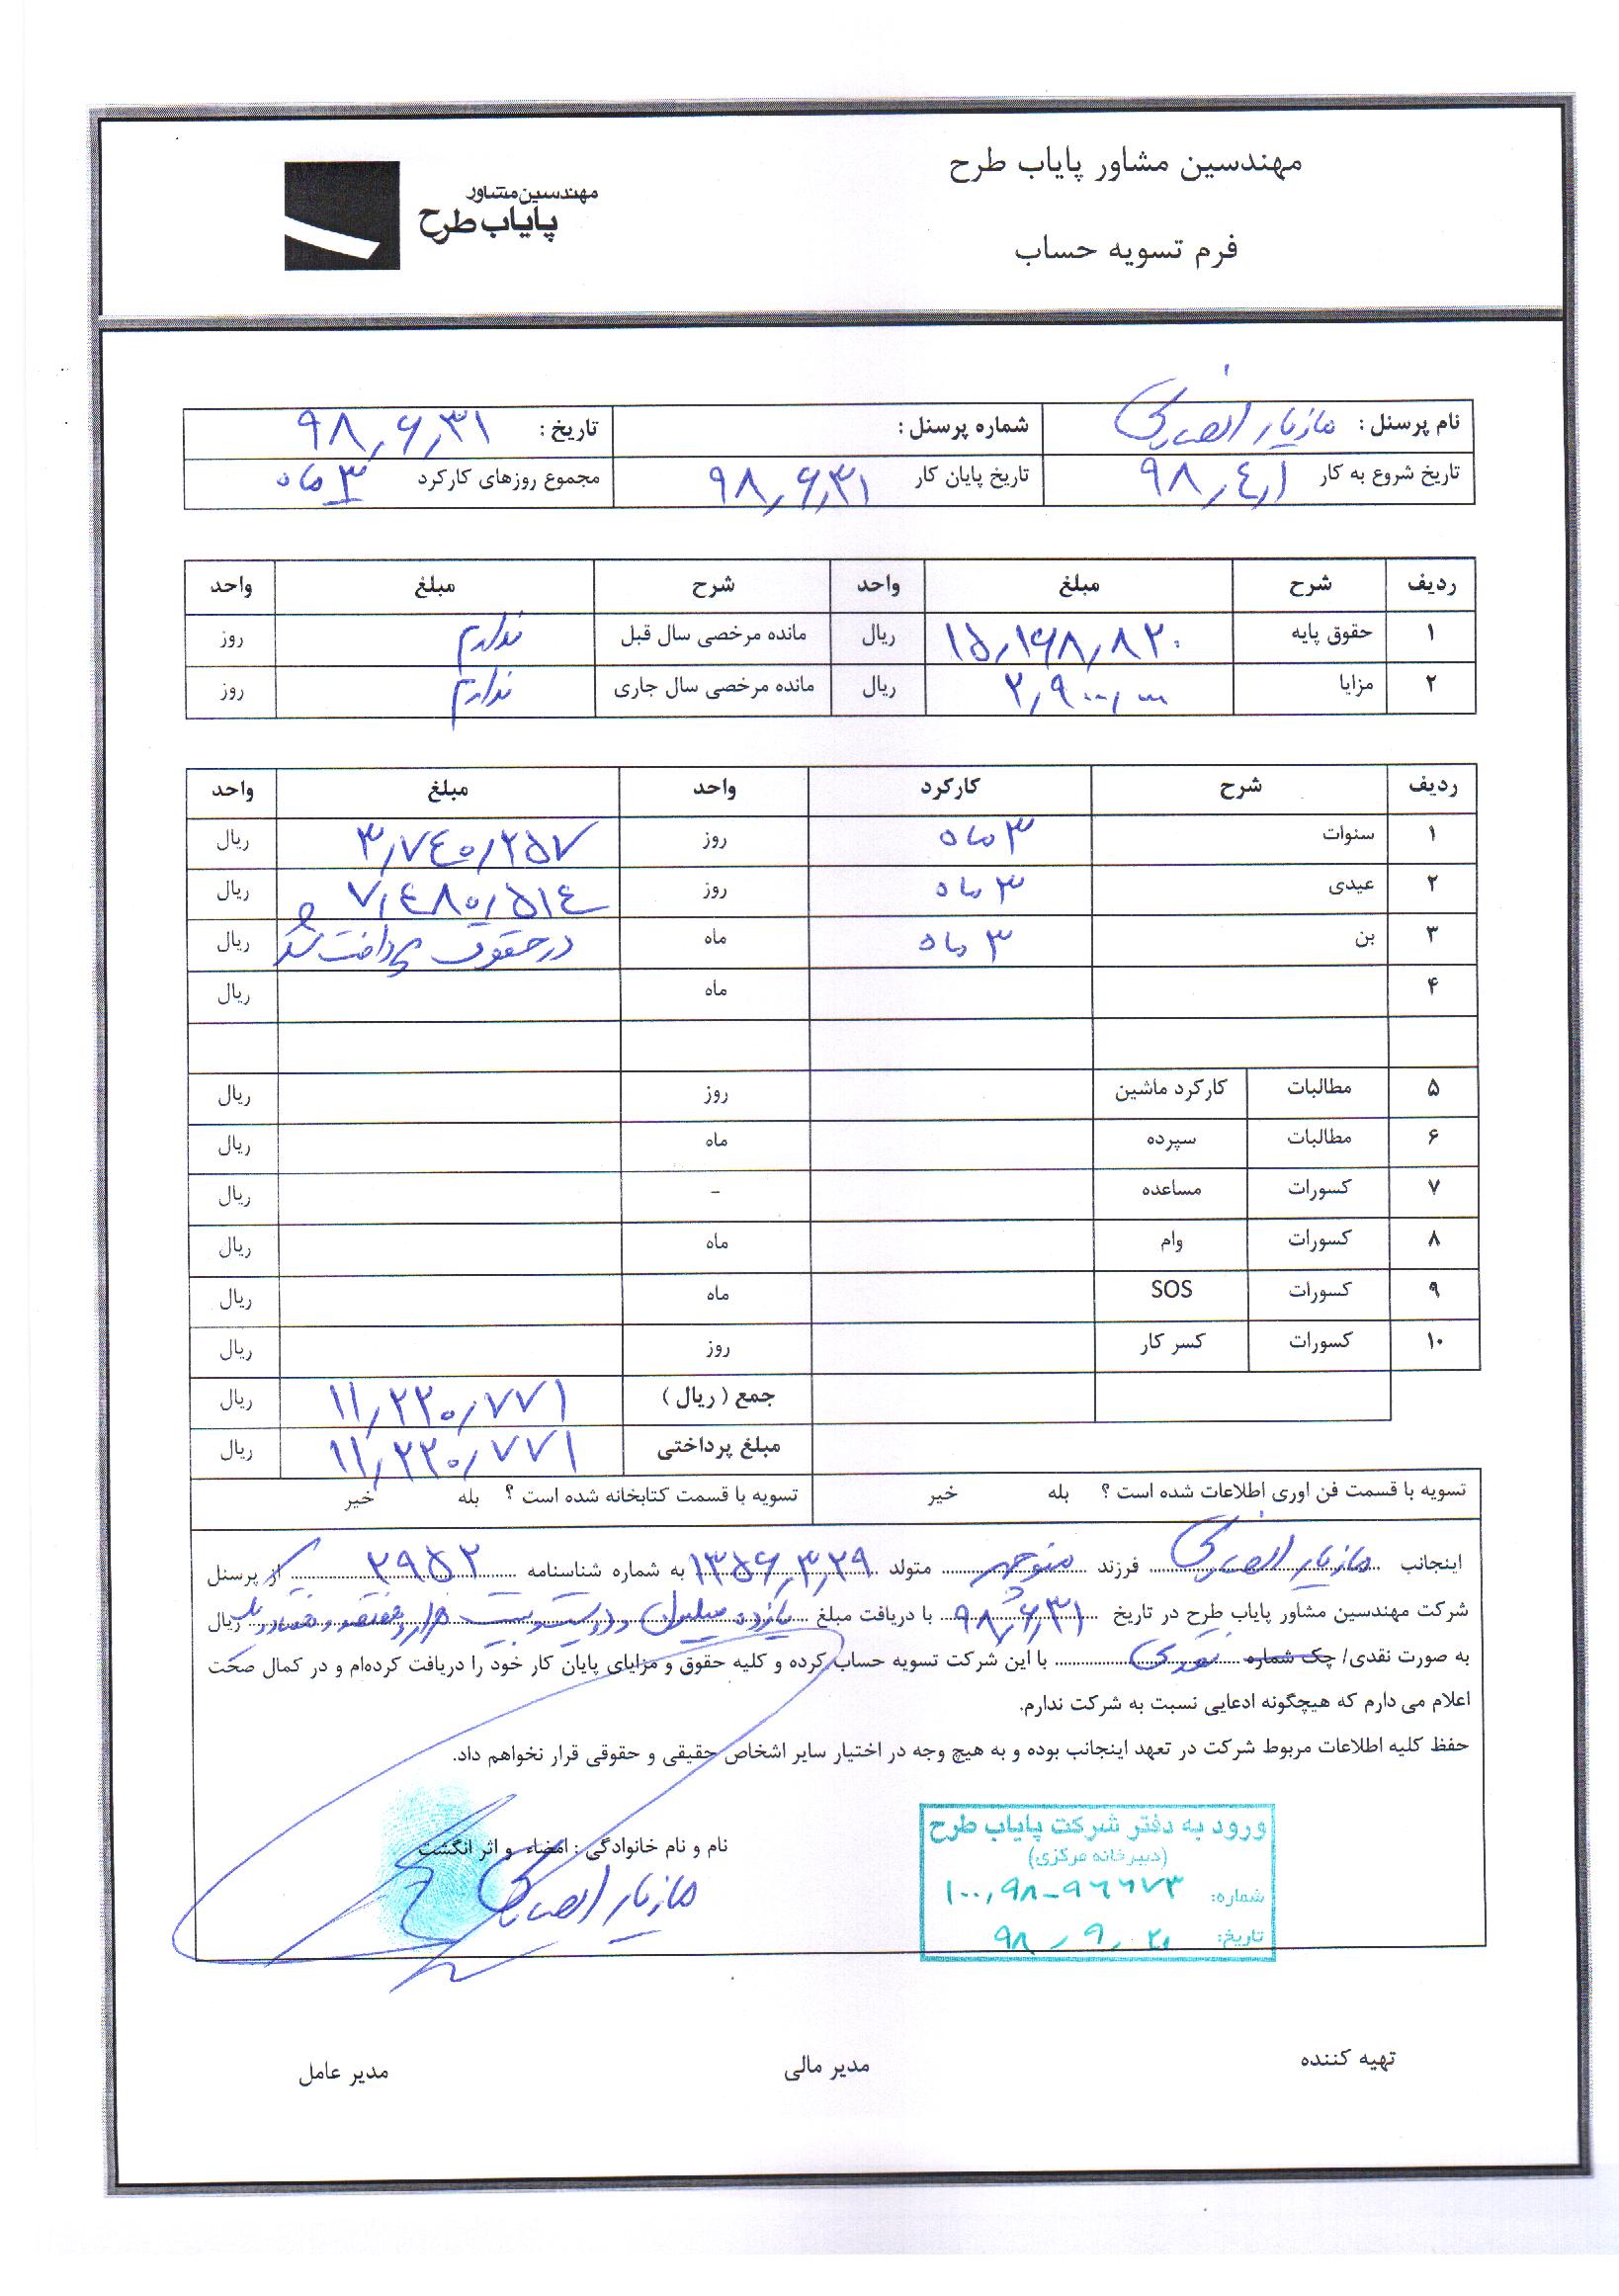 مهندسین مشاور پایاب طرح
مهندسین مشاور
پایاب طرح
فرم تسویه حساب
نام پرسنل : مازیار انصاری شماره پرسنل : تاریخ : ۹۸٫۶٫۳۱
تاریخ شروع به کار ۹۸٫۴٫۱ تاریخ پایان کار ۹۸٫۶٫۳۱ مجموع روزهای کارکرد ۳ ماه
ردیف شرح مبلغ واحد شرح مبلغ واحد
۱ حقوق پایه ۱۵٫۱۶۸٫۸۲۰ ریال مانده مرخصی سال قبل ندارم روز
۲ مزایا ۲٫۹۰۰٫۰۰۰ ریال مانده مرخصی سال جاری ندارم روز
ردیف شرح کارکرد واحد مبلغ واحد
۱ سنوات ۳ ماه روز ۳٫۷۴۰٫۲۵۷ ریال
۲ عیدی ۳ ماه روز ۷٫۴۸۰٫۵۱۴ ریال
۳ بن ۳ ماه ماه در حقوق پرداخت شد ریال
۴ ماه ریال
۵ مطالبات کارکرد ماشین روز ریال
۶ مطالبات سپرده ماه ریال
۷ کسورات مساعده - ریال
۸ کسورات وام ماه ریال
۹ کسورات SOS ماه ریال
۱۰ کسورات کسر کار روز ریال
جمع ( ریال ) ۱۱٫۲۲۰٫۷۷۱ ریال
مبلغ پرداختی ۱۱٫۲۲۰٫۷۷۱ ریال
تسویه با قسمت فن اوری اطلاعات شده است ؟ بله خیر تسویه با قسمت کتابخانه شده است ؟ بله خیر
اینجانب مازیار انصاری فرزند منوچهر متولد ۱۳۵۶٫۳٫۲۹ به شماره شناسنامه ۲۹۵۲ از پرسنل
شرکت مهندسین مشاور پایاب طرح در تاریخ ۹۸٫۶٫۳۱ با دریافت مبلغ یازده میلیون و دویست و بیست هزار و هفتصد و هفتاد و یک ریال
به صورت نقدی/ چک شماره نقدی با این شرکت تسویه حساب کرده و کلیه حقوق و مزایای پایان کار خود را دریافت کرده‌ام و در کمال صحت
اعلام می دارم که هیچگونه ادعایی نسبت به شرکت ندارم.
حفظ کلیه اطلاعات مربوط شرکت در تعهد اینجانب بوده و به هیچ وجه در اختیار سایر اشخاص حقیقی و حقوقی قرار نخواهم داد.
ورود به دفتر شرکت پایاب طرح
(دبیرخانه مرکزی)
شماره: ۱۰۰٫۹۸-۹۶۶۷۳
تاریخ: ۹۸٫۹٫۲۰
نام و نام خانوادگی : امضاء و اثر انگشت
مازیار انصاری
تهیه کننده مدیر مالی مدیر عامل